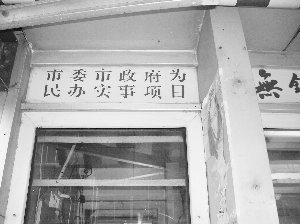 市委市政府为
民办实事项目
無